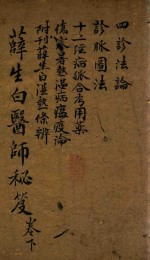 四診法論
診脈圖法
十二經病脈合考用藥
傷寒暑熱濕病瘟疫論
附刊薛生白濕熱條辨
薛生白醫師秘笈 卷下